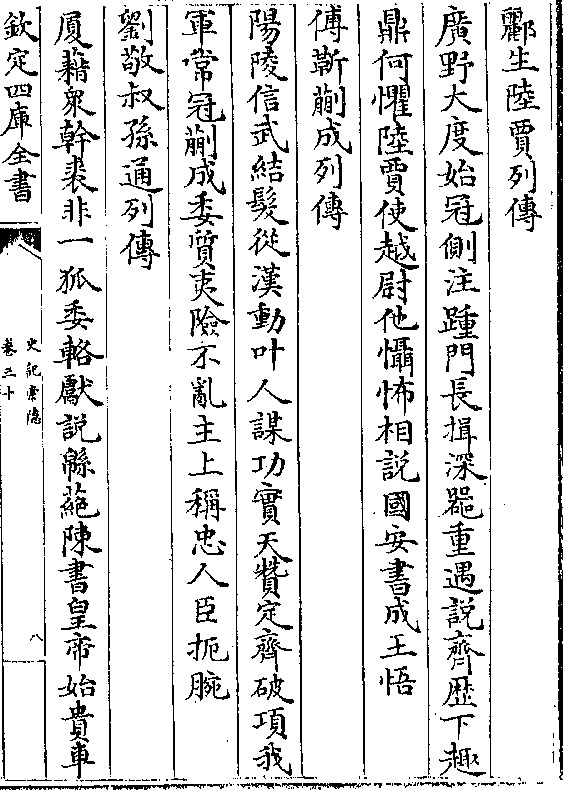 酈生陸賈列傳
廣野大度始冠側注踵門長揖深噐重遇説齊歴下趣
鼎何懼陸賈使越尉佗懾怖相説國安書成主悟
傅靳蒯成列傳
陽陵信武結髮從漢動叶人謀功實天贊定齊破項我
軍常冠蒯成委質夷險不亂主上稱忠人臣扼腕
劉敬叔孫通列傳
厦藉衆幹裘非一狐委輅獻説緜蕝陳書皇帝始貴車
欽定四庫全書
史記索隱
卷三十
八